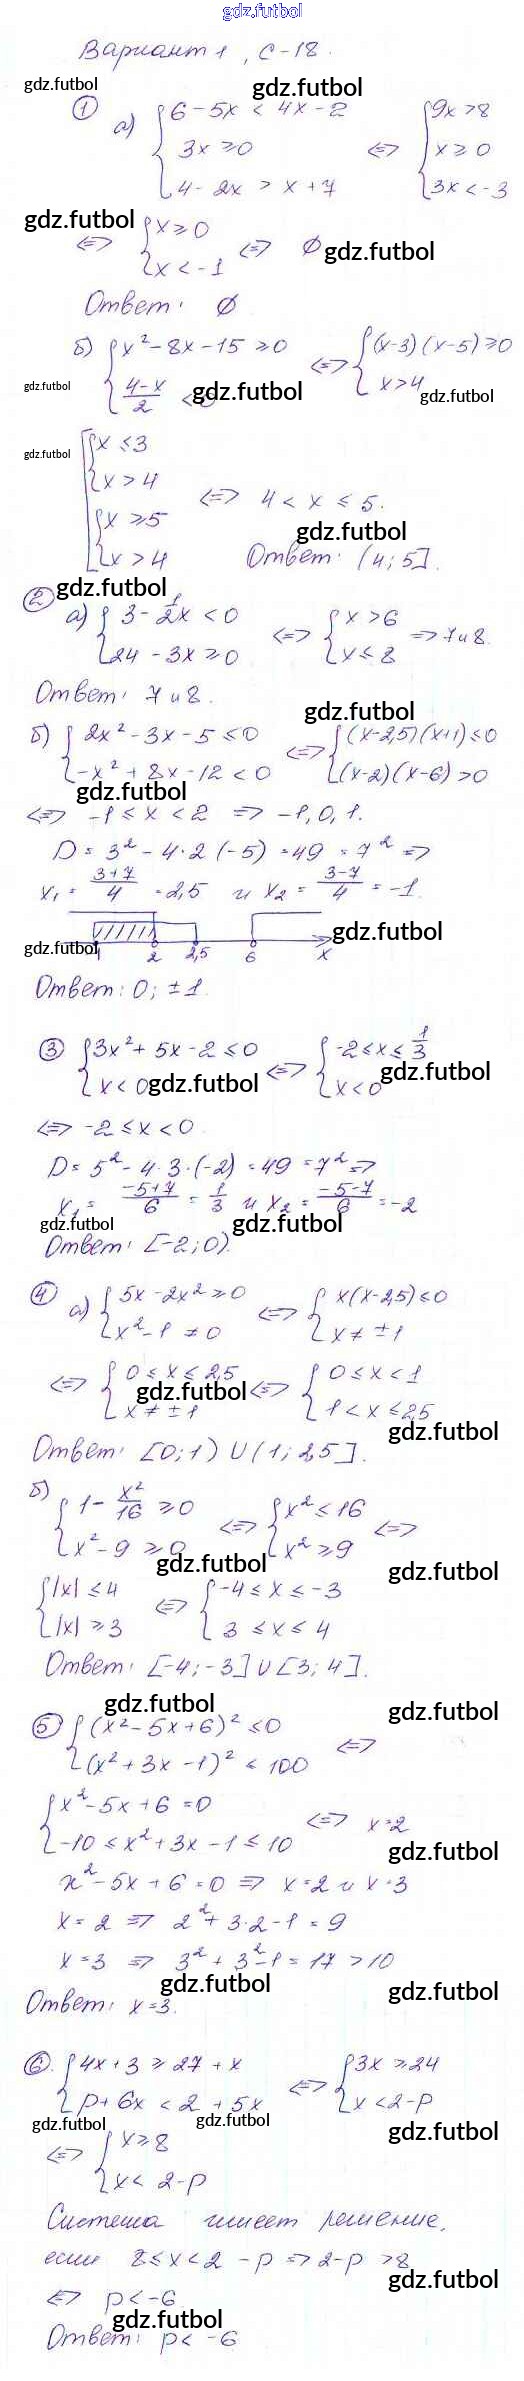 gdz.futbol
Вариант 1, С-18.
gdz.futbol gdz.futbol
① а) { 6 - 5x < 4x - 2
3x ≥ 0
4 - 2x > x + 7
<=> { 9x > 8
x ≥ 0
3x < -3
gdz.futbol
<=> { x ≥ 0
x < -1
<=> ∅ gdz.futbol
Ответ: ∅
б) { x² - 8x - 15 ≥ 0
(4-x)/2 < 0
<=> { (x-3)(x-5) ≥ 0
x > 4
gdz.futbol gdz.futbol gdz.futbol
gdz.futbol
[ { x ≤ 3
x > 4
{ x ≥ 5
x > 4
<=> 4 < x ≤ 5.
gdz.futbol
Ответ: (4; 5].
gdz.futbol
② а) { 3 - 1/2x < 0
24 - 3x ≥ 0
<=> { x > 6
x ≤ 8
=> 7 и 8.
Ответ: 7 и 8.
gdz.futbol
б) { 2x² - 3x - 5 ≤ 0
-x² + 8x - 12 < 0
<=> { (x-2,5)(x+1) ≤ 0
(x-2)(x-6) > 0
gdz.futbol
<=> -1 ≤ x < 2 => -1, 0, 1.
D = 3² - 4·2(-5) = 49 = 7² =>
x₁ = (3+7)/4 = 2,5 и x₂ = (3-7)/4 = -1.
gdz.futbol
gdz.futbol -1 2 2,5 6 x
Ответ: 0; ±1.
③ { 3x² + 5x - 2 ≤ 0
x < 0
<=> { -2 ≤ x ≤ 1/3
x < 0
gdz.futbol gdz.futbol
<=> -2 ≤ x < 0.
D = 5² - 4·3·(-2) = 49 = 7² =>
x₁ = (-5+7)/6 = 1/3 и x₂ = (-5-7)/6 = -2
gdz.futbol gdz.futbol
Ответ: [-2; 0).
④ а) { 5x - 2x² ≥ 0
x² - 1 ≠ 0
<=> { x(x-2,5) ≤ 0
x ≠ ±1
<=> { 0 ≤ x ≤ 2,5
x ≠ ±1
<=> { 0 ≤ x < 1
1 < x ≤ 2,5
gdz.futbol gdz.futbol
Ответ: [0; 1) ∪ (1; 2,5].
б) { 1 - x²/16 ≥ 0
x² - 9 ≥ 0
<=> { x² ≤ 16
x² ≥ 9
<=>
gdz.futbol gdz.futbol
{ |x| ≤ 4
|x| ≥ 3
<=> { -4 ≤ x ≤ -3
3 ≤ x ≤ 4
Ответ: [-4; -3] ∪ [3; 4].
gdz.futbol gdz.futbol
⑤ { (x² - 5x + 6)² ≤ 0
(x² + 3x - 1)² ≤ 100
<=>
{ x² - 5x + 6 = 0
-10 ≤ x² + 3x - 1 ≤ 10
<=> x = 2
gdz.futbol
x² - 5x + 6 = 0 => x = 2 и x = 3
x = 2 => 2² + 3·2 - 1 = 9
x = 3 => 3² + 3² - 1 = 17 > 10
gdz.futbol gdz.futbol
Ответ: x = 3.
⑥. { 4x + 3 ≥ 27 + x
p + 6x < 2 + 5x
<=> { 3x ≥ 24
x < 2 - p
gdz.futbol gdz.futbol gdz.futbol
<=> { x ≥ 8
x < 2 - p
Система имеет решение,
если 8 ≤ x < 2 - p => 2 - p > 8
gdz.futbol
<=> p < -6.
gdz.futbol
Ответ: p < -6
gdz.futbol